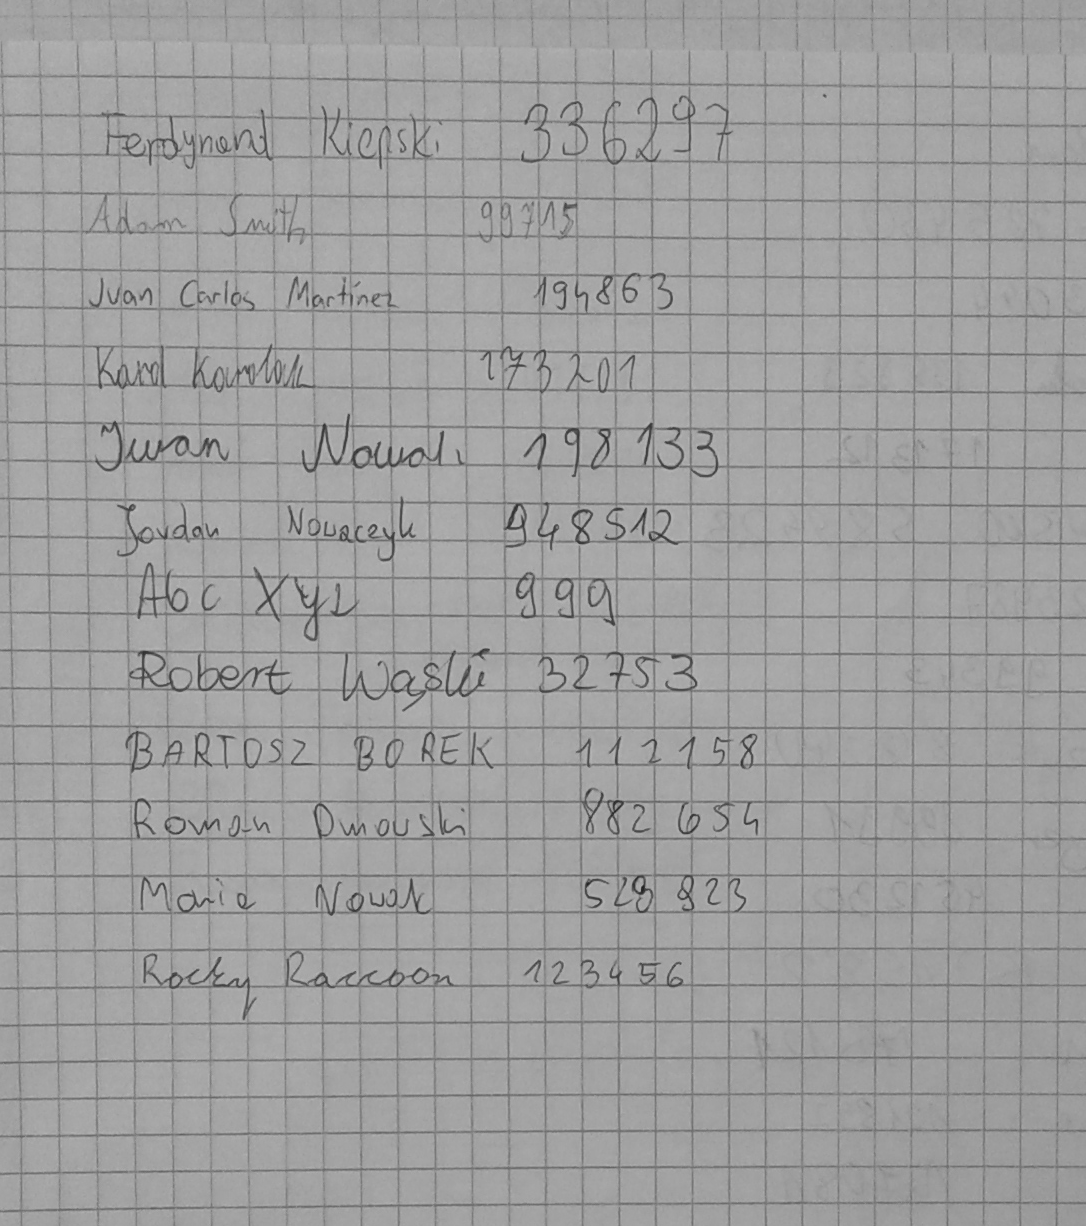 Ferdynand Kiepski 336297
Adam Smith 99715
Juan Carlos Martinez 194863
Karol Karolak 173201
Iwan Nowak 198133
Jordan Novaceyk 948512
Abc Xyz 999
Robert Wąski 32753
BARTOSZ BOREK 112158
Roman Dmowski 882 654
Maria Nowak 529 823
Rocky Raccoon 123456